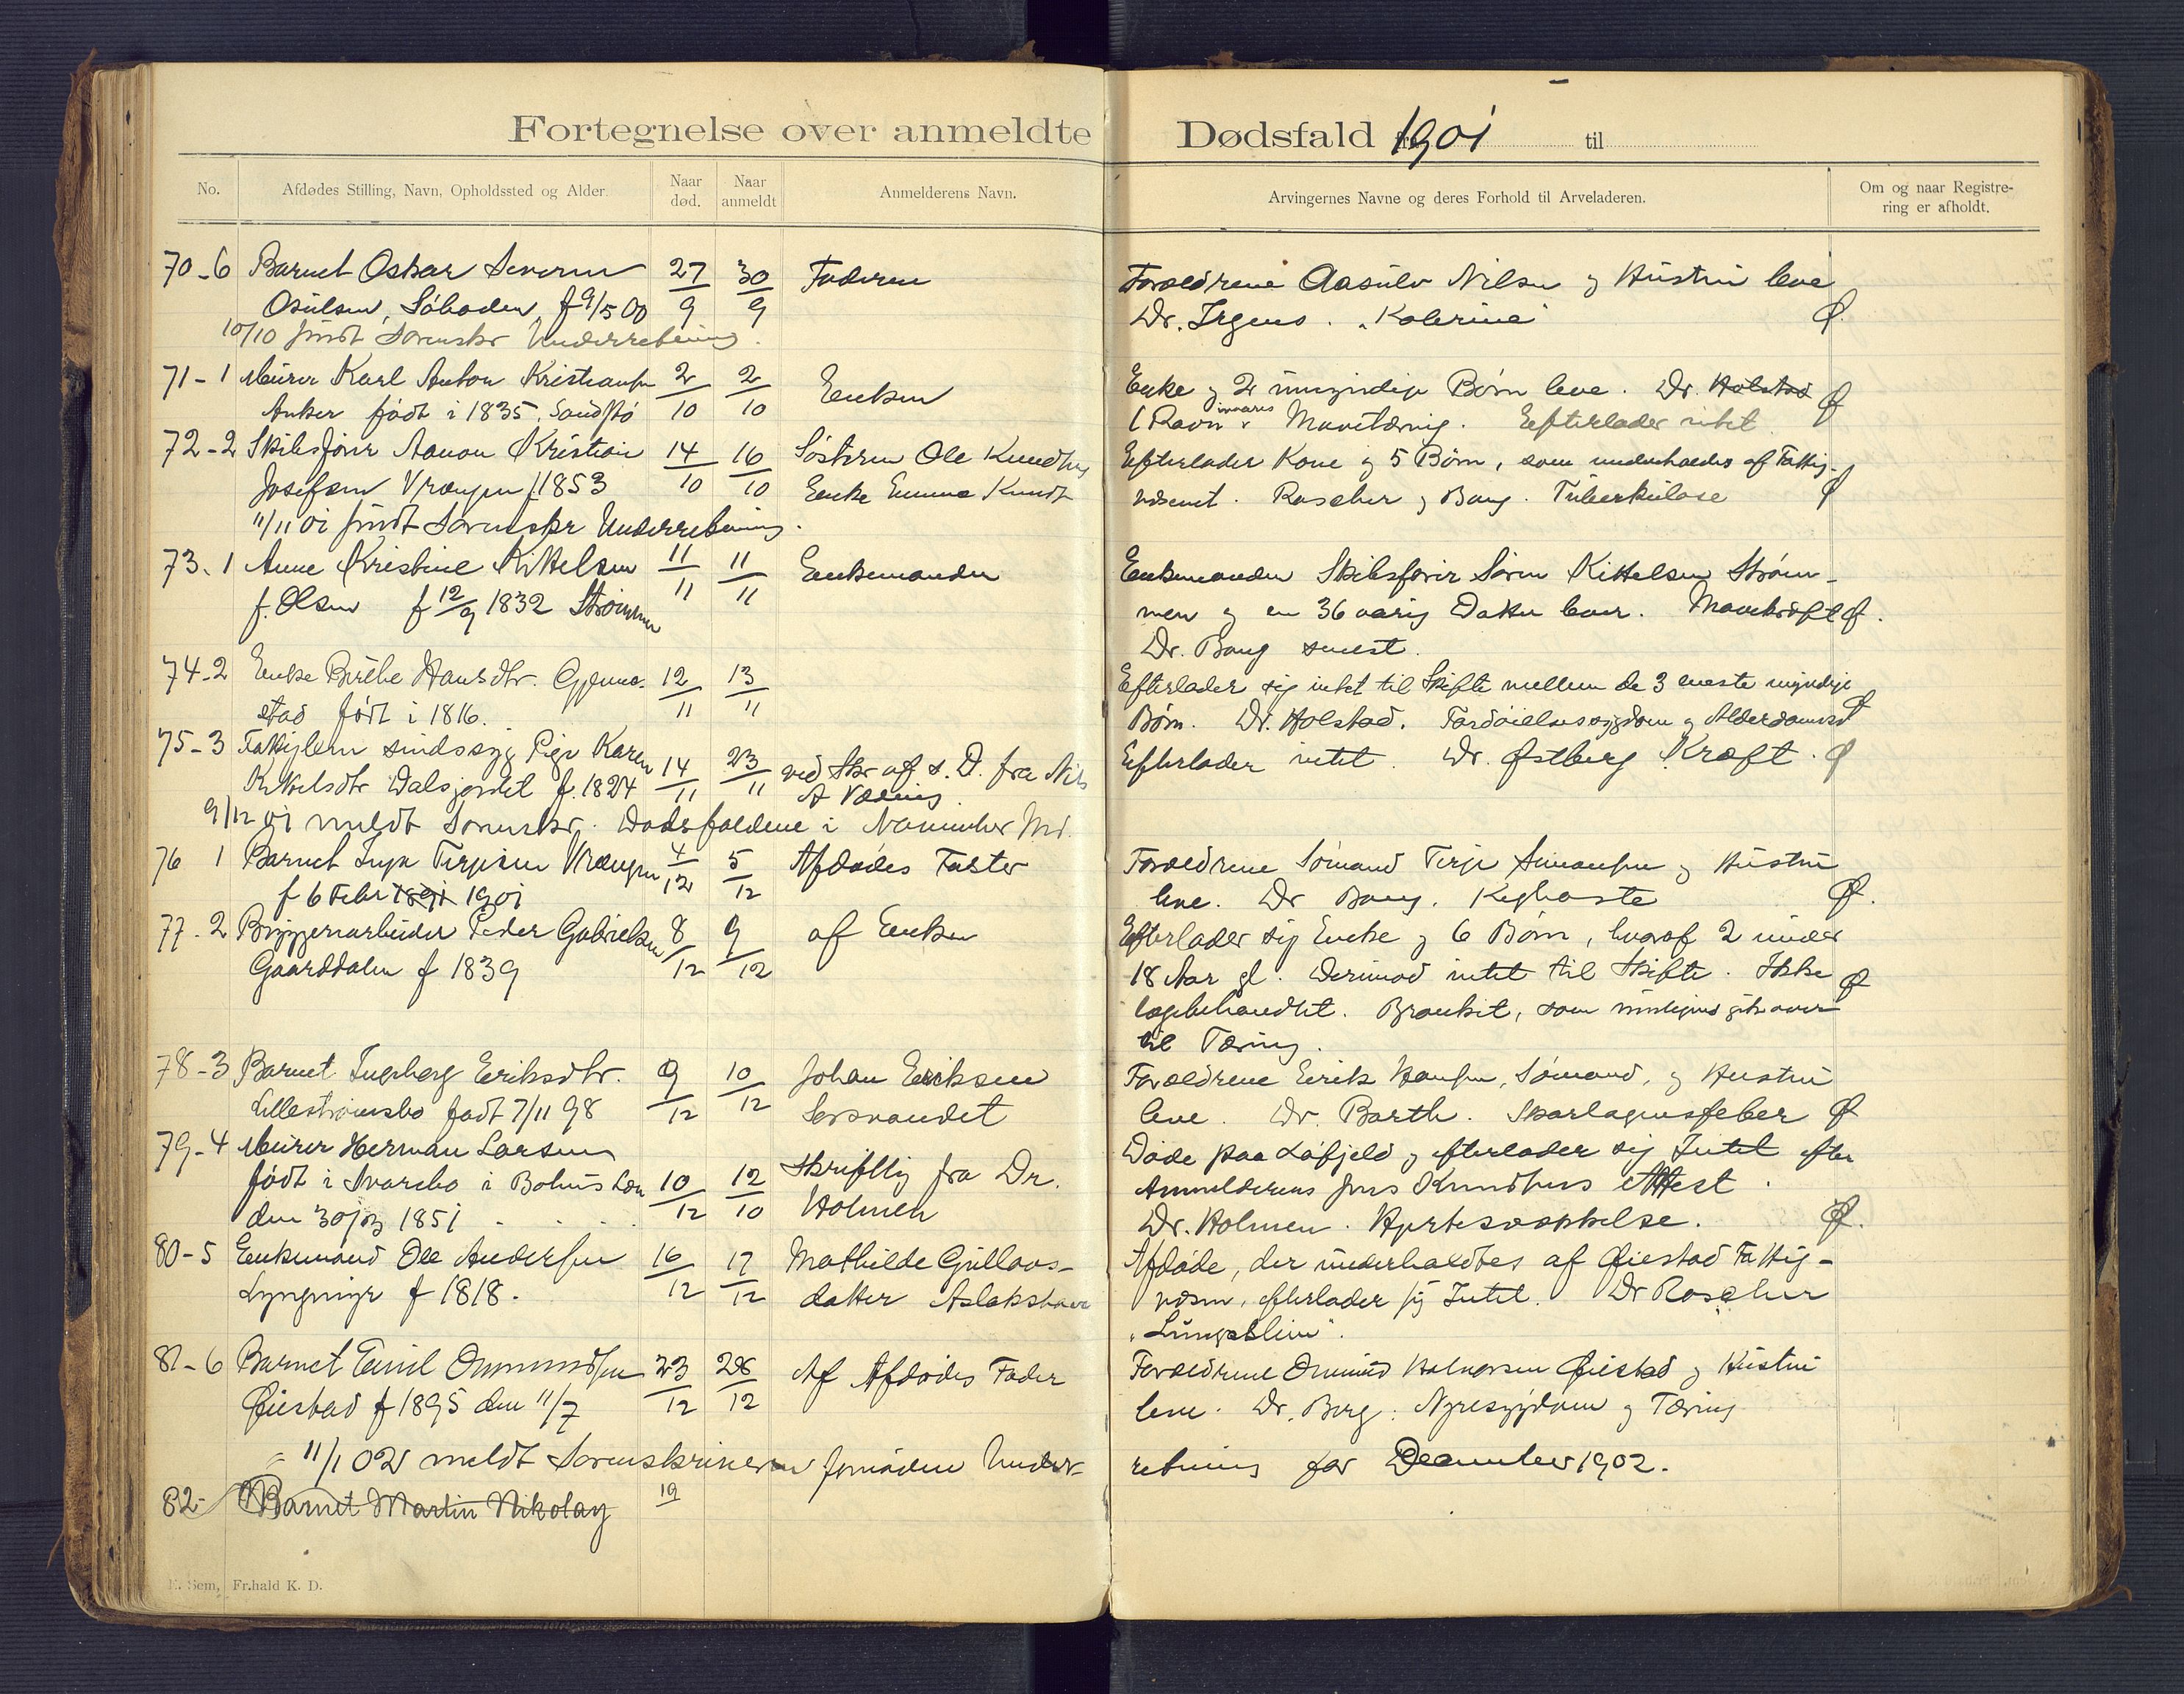 Fortegnelse over anmeldte Dødsfald 1901 til
No. Afdødes Stilling, Navn, Opholdssted og Alder. Naar død. Naar anmeldt Anmelderens Navn. Arvingernes Navne og deres Forhold til Arveladeren. Om og naar Registrering er afholdt.
70-6 Barnet Oskar Severin 27/9 30/9 Faderen Forældrene Aasulv Nilsen og Hustru leve
Osulsen, f 9/5 00 Dr. Irgens. „Kolerine" Ø.
10/10 sendt Sorenskr Underretning.
71-1 Murer Karl Anton Kristiansen 2/10 2/10 Enken Enke og 2 umyndige Børn leve. Dr. Holstad Ø
Anker født i 1835. (Ravn Mavetæring. Efterlader intet
72-2 Skibsfører Aanon Kristian 14/10 16/10 Søsteren Ole Efterlader Kone og 5 Børn, som underholdes af Fattig-
Josefsen Vrængen f 1853 Enke Emma væsenet. Rascher og Bang. Tuberkulose Ø
11/11 01 sendt Sorenskr Underretning.
73. 1 Anne Kristine Kittelsen 11/11 11/11 Enkemanden Enkemanden Skibsfører Søren Kittelsen Strøm-
f. Olsen f 12/9 1832 Strømmen men og en 36 aarig Datter lever. Mavekræft Ø.
Dr. Bang senest.
74-2 Enke Birthe Hansdtr. 12/11 13/11 Efterlader sig intet til Skifte mellem de 3 eneste myndige
stad født i 1816. Børn. Dr. Holstad. Fordøielsessygdom og Ø
75-3 Fattiglem sindssyg Pige Karen 14/11 23/11 ved Skr af s. D. fra Nils Efterlader intet. Dr. Østberg Kræft. Ø
Kittelsdtr Dalsjordet f. 1824 A
9/12 01 meldt Sorenskr. Dødsfaldene i November Md.
76 1 Barnet Inga Terjesen Vrængen 4/12 5/12 Afdødes Faster Forældrene Sømand Terje og Hustru
f 6 Febr 1891 1901 leve. Dr Bang. Kighoste Ø.
77-2 Bryggeriarbeider Peder Gabrielsen 8/12 9/12 af Enken Efterlader sig Enke og 6 Børn, hvoraf 2 under
Gaarddalen f 1839 18 Aar gl. Derimod intet til Skifte. Ikke Ø
lægebehandlet. Bronkit, som gik over
til Tæring.
78-3 Barnet Ingeborg Eriksdtr. 9/12 10/12 Johan Eriksen Forældrene Erik Hansen, Sømand, og Hustru
Lillestrømsbo født 7/11 98 Sørsvandet leve. Dr. Barth. Skarlagensfeber Ø
79-4 Murer Herman Larsen Døde paa Løfjeld og efterlader sig Intet efter
født i Svarebo i Bohus Len 10/12 12/10 Skriftlig fra Dr. Anmelderens Jens Knudsens Attest.
den 30/3 1851 Holmen Dr. Holmen. Hjertesvækkelse. Ø.
80-5 Enkemand Ole Andersen 16/12 17/12 Mathilde Gullovs- Afdøde, der underholdtes af Øiestad Fattig-
Lyngmyr f 1818. datter væsen, efterlader sig Intet. Dr Rascher
„Lungeslim".
81-6 Barnet Emil Ommundsen 23/12 28/12 Af Afdødes Fader Forældrene Ommund Halvorsen Øiestad og Hustru
Øiestad f 1895 den 11/7 leve. Dr. Berg: Nyresygdom og Tæring
11/1 02 meldt Sorenskriveren fornøden Underretning for December 1902.
82- Barnet Martin Nikolay 19
E. Sem, Fr.hald K. D.